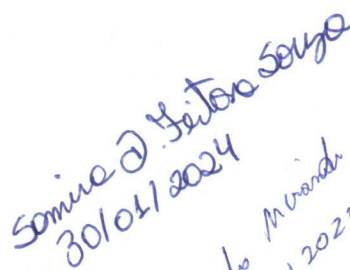 Samira D. Feitosa Souza
30/01/2024
Miranda
202